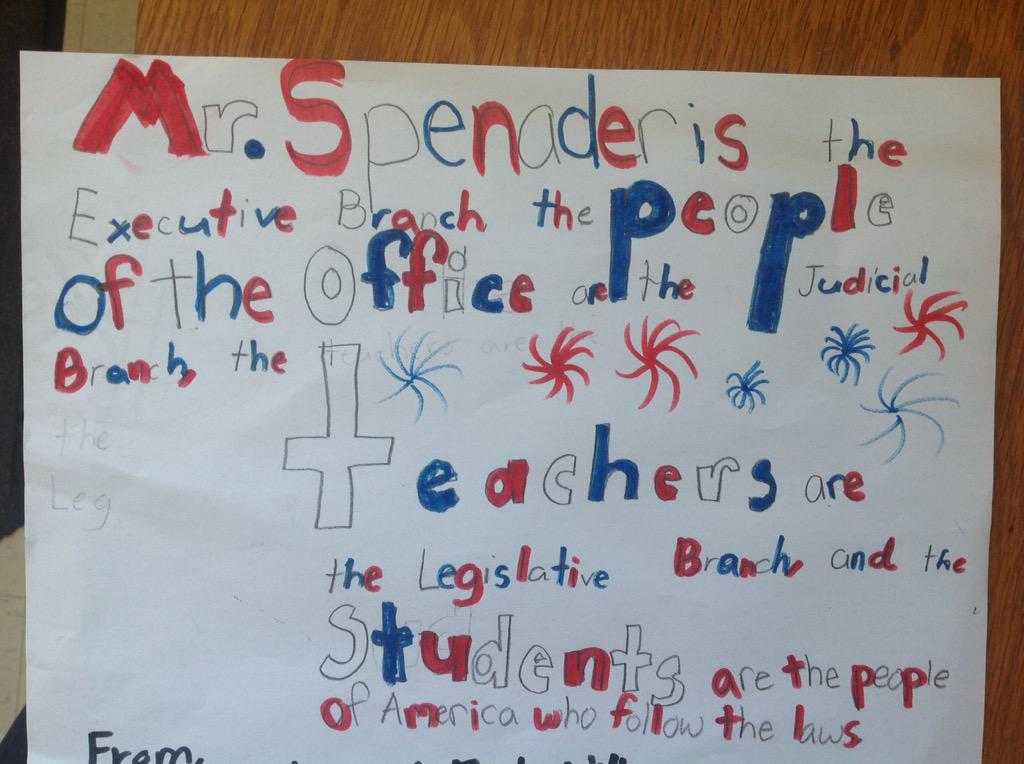 Mr. Spenader is the
Executive Branch, the people
of the Office are the Judicial
Branch, the
Teachers are
the
Leg
Teachers are
the Legislative Branch, and the
Students are the people
of America who follow the laws
From,